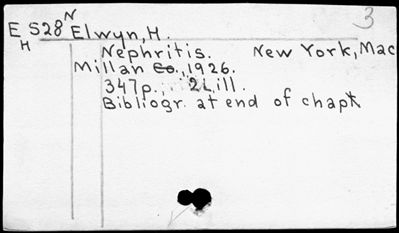 3
N
E S28 Elwyn, H.
H
Nephritis. New York, Mac
Millan Co., 1926.
347p., 2 ill.
Bibliogr. at end of chapt